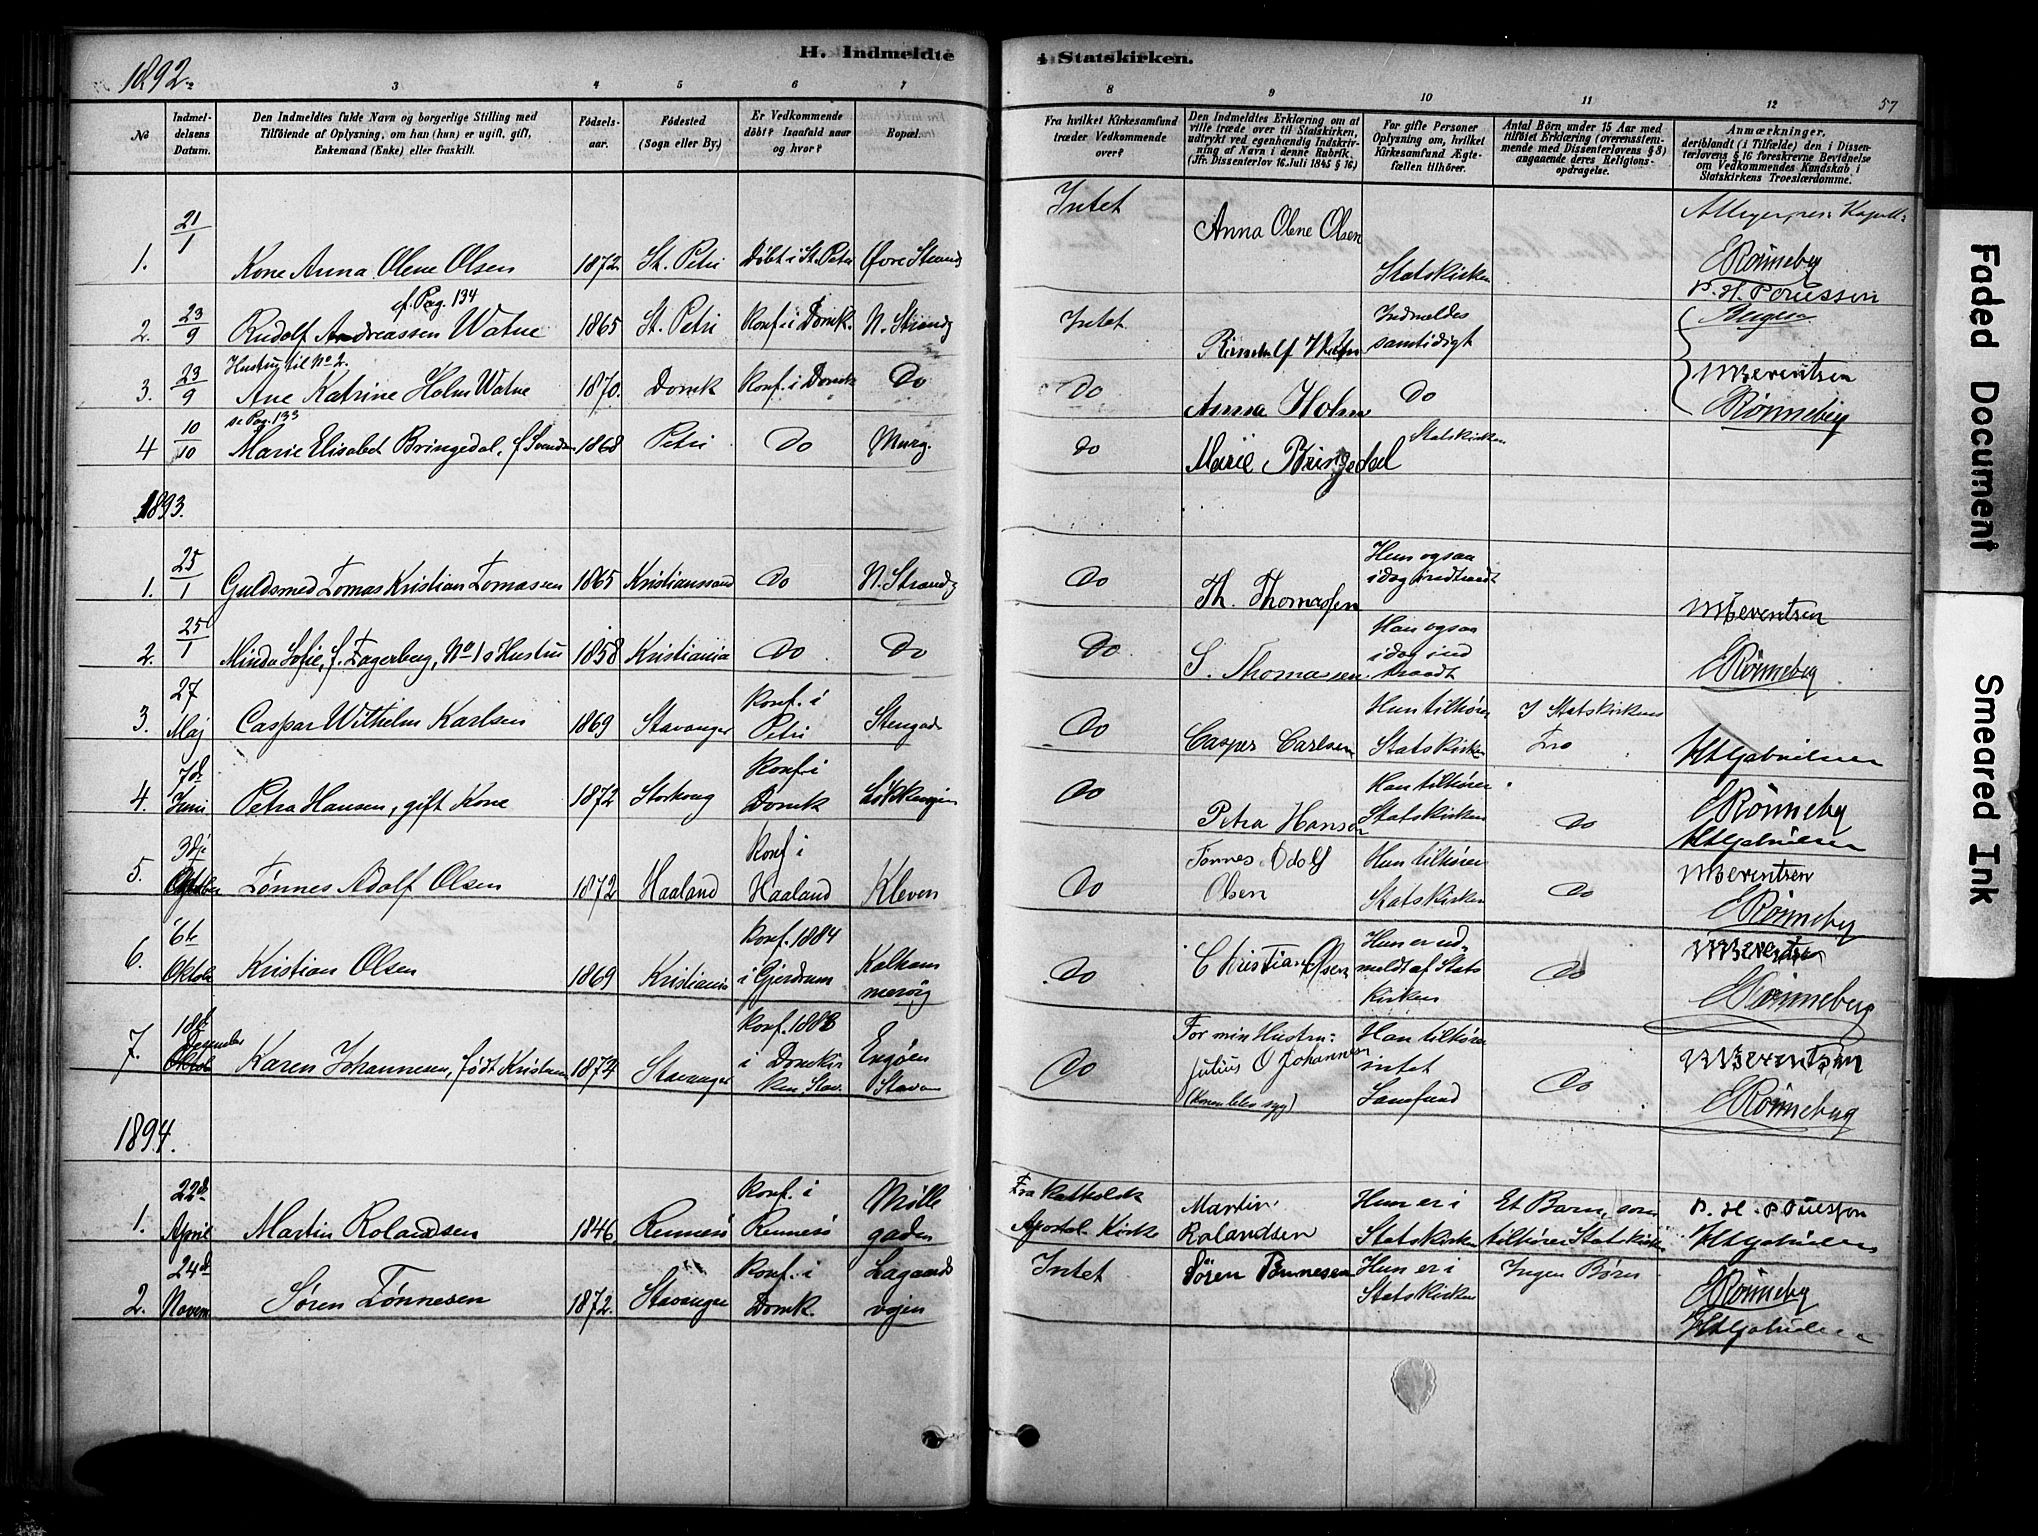 1892
H. Indmeldte i Statskirken.
57
3 4 5 6 7 8 9 10 11 12
No
Indmel-
delsens
Datum.
Den Indmeldtes fulde Navn og borgerlige Stilling med
Tilföiende af Oplysning, om han (hun) er ugift, gift,
Enkemand (Enke) eller fraskilt.
Födsels-
aar.
Födested
(Sogn eller By.)
Er Vedkommende
döbt? Isaafald naar
og hvor?
Bopæl.
Fra hvilket Kirkesamfund
træder Vedkommende
over?
Den Indmeldtes Erklæring om at
ville træde over til Statskirken,
udtrykt ved egenhændig Indskriv-
ning af Navn i denne Rubrik.
(Jfr. Dissenterlov 16. Juli 1845 § 16.)
For gifte Personer
Oplysning om, hvilket
Kirkesamfund Ægte-
fællen tilhörer.
Antal Börn under 15 Aar med
tilföiet Erklæring (overensstem-
mende med Dissenterlovens § 8)
angaaende deres Religions-
opdragelse.
Anmærkninger,
deriblandt (i Tilfælde) den i Dissen-
terlovens § 16 foreskrevne Bevidnelse
om Vedkommendes Kundskab i
Statskirkens Troeslærdomme.
1. 21/1 Kone Anna Olene Olsen 1872 St. Petri Döbt i St. Petri Øvre Strandg Intet Anna Olene Olsen Statskirken
ERönneberg
2. 23/9 cf. Pag. 134
Rudolf Andreassen Watne 1865 St. Petri Konf. i Domk. N. Strandg Intet Indmeldes
samtidigt
3. 23/9 Hustru til No 2.
Ane Katrine Holm Watne 1870. Domk Konf. i Domk Do Do Anna Holm Do MBerentsen
Rönneberg
4 10/10 se Pag. 133
Marie Elisabet Bringedal, f. Svendsen 1868 Petri Do Murg. Do Marie Bringedal Statskirken
1893.
1. 25/1 Guldsmed Tomas Kristian Tomassen 1865 Kristianssand Do N. Strandg Do Th. Thomassen Hun ogsaa
idag indtraadt MBerentsen
2. 25/1 Minda Sofie, f. Fagerberg, No 1s Hustru 1858 Kristiania Do Do Do S. Thomassen Han ogsaa
idag ind
traadt ERönneberg
3. 27 Maj Caspar Wilhelm Karlsen 1869 Stavanger Konf. i
Petri Stengad Do Casper Carlsen Hun tilhörer
Statskirken I Statskirkens
Tro HGabrielsen
4. 7de Juni Petra Hansen, gift Kone 1872 Konf. i
Domk Do Petra Hansen Han tilhörer
Statskirken Do ERönneberg
HGabrielsen
5. 3dje Oktober Tønnes Adolf Olsen 1872 Haaland Konf i
Haaland Kleven Do Tønnes Adolf
Olsen Hun tilhörer
Statskirken Do MBerentsen
ERönneberg
6. 6te Oktober Kristian Olsen 1869 Kristiania Konf. 1884
i Gjerdrum Kalham
merög Do Christian Olsen Hun er ud-
meldt af Stats
Kirken Do MBerentsen
ERönneberg
7. 18de Dezember Karen Johannesen, født Kristensen 1874 Stavanger Konf. 1888
i Domkir
ken, Stav. Engöen
Stavan Do For min Hustru:
Julius O Johannesen
(Konen blev syg) Han tilhörer
intet
Samfund Do MBerentsen
ERönneberg
1894.
1. 22de April Martin Rolandsen 1846 Rennesö Konf. i
Rennesö Mölle
gaden Fra Katholsk
Apostol. Kirke Martin
Rolandsen Hun er i
Statskirken Et Barn, som
tilhörer Statskirken HGabrielsen
2. 24de Novem Søren Tönnesen 1872. Stavanger Konf. i
Domk. Lagaards
vejen Intet Sören Tönnesen Hun er i
Statskirken Ingen Börn ERönneberg
HGabrielsen
Faded Document
Smeared Ink